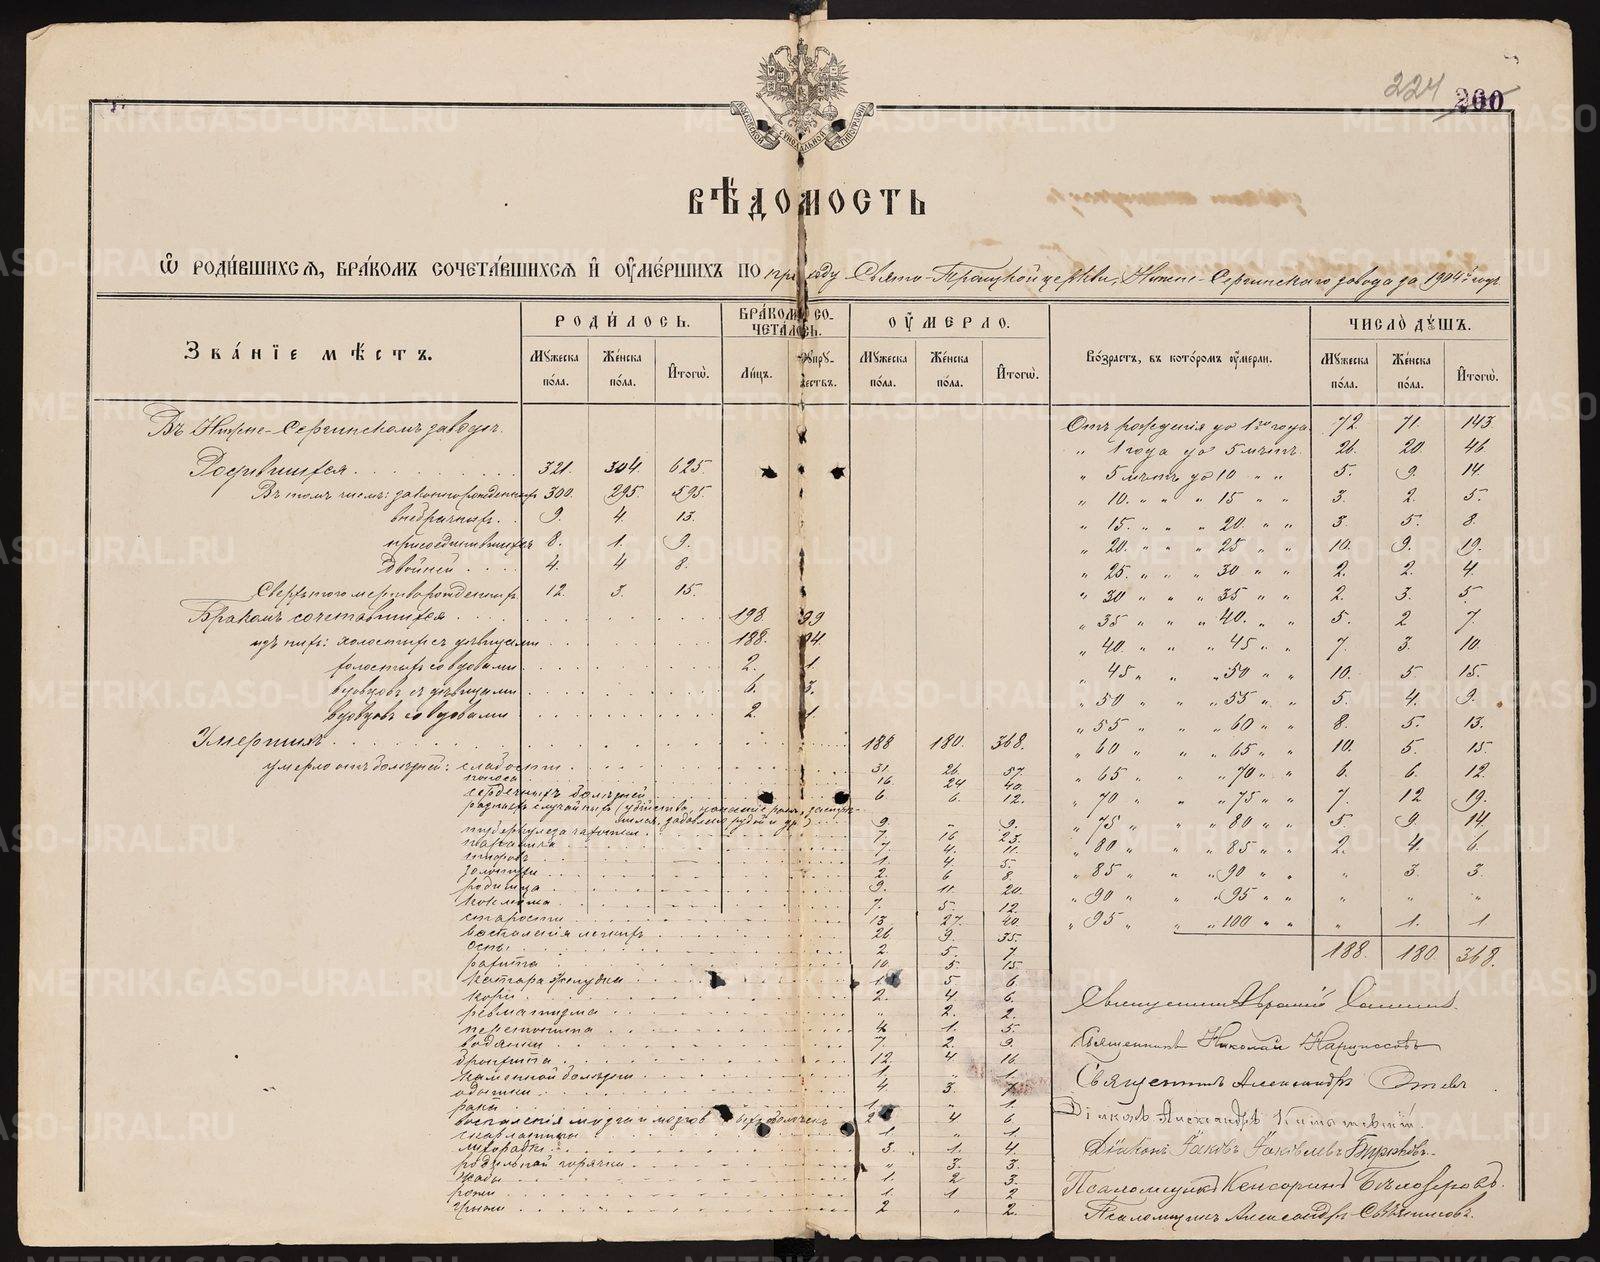 224 200
СѴНОДАЛЬНОЙ ТИПОГРАФІИ
ВѢДОМОСТЬ
Ѡ РОДИ́ВШИХСѦ, БРА́КОМЪ СОЧЕТА́ВШИХСѦ И҆ ОУ҆МЕ́РШИХЪ ПО приходу Свято-Троицкой церкви, Нижне-Сергинскаго завода за 1904й годъ
ЗВА́НІЕ МѢ́СТЪ. РОДИ́ЛОСЬ. БРА́КОМЪ СО-ЧЕТА́ЛОСЬ. ОУ҆́МЕРЛО. Во́зрастъ, въ кото́ромъ оу҆́мерли. ЧИСЛО̀ ДУ́ШЪ.
Му́жеска по́ла. Же́нска по́ла. И҆того̀. Ли́цъ. Супру́жествъ. Му́жеска по́ла. Же́нска по́ла. И҆того̀. Му́жеска по́ла. Же́нска по́ла. И҆того̀.
Въ Нижне-Сергинскомъ заводѣ.
Родившихся 321. 304. 625.
Въ томъ числѣ: законнорожденныхъ 300. 295. 595.
внѣбрачныхъ 9. 4. 13.
присоединившихся 8. 1. 9.
двойней 4. 4 8.
Сверхъ того мертворожденныхъ 12. 3. 15.
Бракомъ сочетавшихся 198. 99
изъ нихъ: холостыхъ съ дѣвицами 188. 94.
холостыхъ со вдовами 2. 1.
вдовцовъ съ дѣвицами 6. 3.
вдовцовъ со вдовами 2. 1.
Умершихъ 188 180. 368.
умерло отъ болѣзней: слабости 31. 26. 57.
поноса 16. 24 40.
сердечныхъ болѣзней 6. 6. 12.
разныхъ случайныхъ (убійства,
задавленъ рудой и др.) 9. „ 9.
туберкулеза чахотки 7. 16 23.
7. 4. 11.
1. 4. 5.
золотухи 2. 6 8.
родимца 9. 11. 20.
коклюша 7. 5. 12.
старости 13. 27. 40.
воспаленія легкихъ 26. 9. 35.
оспы 2. 5. 7.
рахита 10. 5. 15.
катара желудка 1. 5 6
кори 2. 4 6.
ревматизма „ 2. 2.
перетонита 4. 1. 5.
водянки 7. 2. 9.
бронхита 12. 4. 16.
каменной болѣзни 1. „ 1.
одышки 4 3. 7.
рака 1. „ 1.
воспаленія мозга и мозговыхъ оболочекъ 2 4 6
скарлатины 1. „ 1.
лихорадки 3. 1. 4.
родильной горячки „ 3. 3.
жабы 1. 2 3.
рожи 1. 1 2
грыжи 2 „ 2.
Отъ рожденія до 1го года. 72. 71. 143.
„ 1 года до 5 лѣтъ. 26. 20. 46.
„ 5 лѣтъ до 10 „ „ 5. 9. 14.
„ 10. „ „ „ 15 „ „ 3. 2. 5.
„ 15. „ „ „ 20. „ „ 3. 5. 8.
„ 20. „ „ „ 25 „ „ 10. 9. 19.
„ 25. „ „ „ 30 „ „ 2. 2. 4.
„ 30 „ „ „ 35 „ „ 2. 3. 5.
„ 35 „ „ „ 40. „ „ 5. 2 7.
„ 40. „ „ „ 45 „ „ 7. 3. 10.
„ 45 „ „ „ 50 „ „ 10. 5. 15.
„ 50 „ „ „ 55 „ „ 5. 4. 9.
„ 55 „ „ „ 60 „ „ 8. 5. 13.
„ 60 „ „ „ 65 „ „ 10. 5. 15.
„ 65 „ „ „ 70 „ „ 6. 6. 12.
„ 70 „ „ „ 75 „ „ 7. 12 19.
„ 75 „ „ „ 80 „ „ 5 9. 14.
„ 80 „ „ „ 85 „ „ 2. 4. 6.
„ 85 „ „ „ 90 „ „ „ 3. 3.
„ 90 „ „ „ 95 „ „ „ „ „
„ 95 „ „ „ 100 „ „ „ 1. 1
188. 180. 368.
Священникъ
Священникъ Николай Нарциссовъ
Священникъ Александръ
Діаконъ Александръ
Діаконъ Іаковъ Іаковлевъ Бирюковъ
Псаломщикъ Кенсоринъ Бѣлозеровъ.
Псаломщикъ Александръ
METRIKI.GASO-URAL.RU